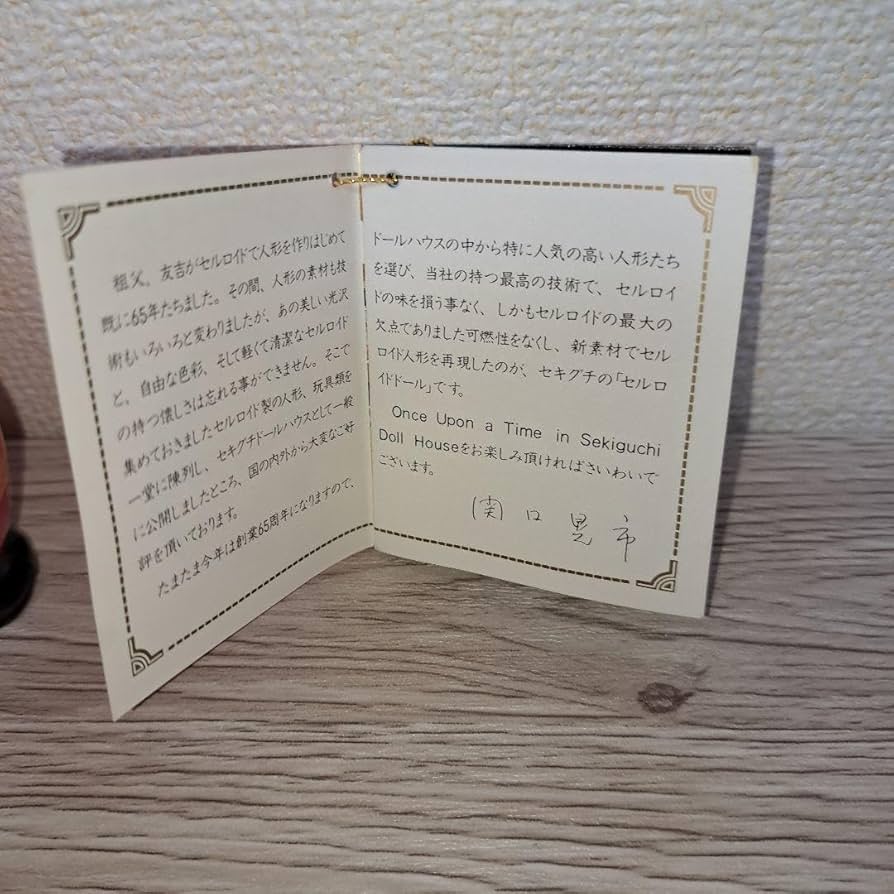 祖父。友吉がセルロイドで人形を作りはじめて
既に65年たちました。その間、人形の素材も技
術もいろいろと変わりましたが、あの美しい光沢
と、自由な色彩、そして軽くて清潔なセルロイド
の持つ懐しさは忘れる事ができません。そこで
集めておきましたセルロイド製の人形、玩具類を
一堂に陳列し、セキグチドールハウスとして一般
に公開しましたところ、国の内外から大変なご好
評を頂いております。
たまたま今年は創業65周年になりますので、
ドールハウスの中から特に人気の高い人形たち
を選び、当社の持つ最高の技術で、セルロイ
ドの味を損う事なく、しかもセルロイドの最大の
欠点でありました可燃性をなくし、新素材でセル
ロイド人形を再現したのが、セキグチの「セルロ
イドドール」です。
Once Upon a Time in Sekiguchi
Doll Houseをお楽しみ頂ければさいわいで
ございます。
関口晃市